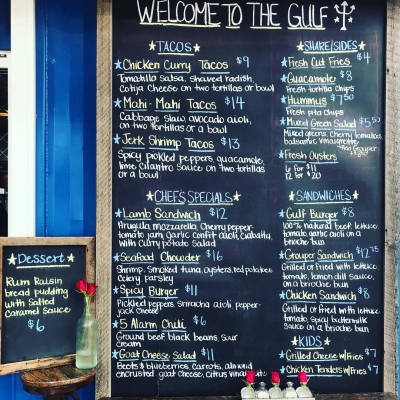 WELCOME TO THE GULF
TACOS
Chicken Curry Tacos $9
Tomatillo Salsa, shaved radish,
Cotija Cheese on two tortillas or bowl
Mahi-Mahi Tacos $14
Cabbage Slaw, avocado aioli,
on two tortillas or a bowl
Jerk Shrimp Tacos $13
Spicy pickled peppers, guacamole,
lime cilantro Sauce on two tortillas
or a bowl
CHEF'S SPECIALS
Lamb Sandwich $12
Arugula, mozzarella, Cherry pepper,
tomato jam, Garlic confit aioli, ciabatta
with curry potato Salad
Seafood Chowder $16
Shrimp, Smoked tuna, oysters, red potatoes
Celery, parsley
Spicy Burger $11
Pickled peppers, Sriracha aioli, pepper-
jack Cheese
5 Alarm Chili $6
Ground beef, black beans, Sour
Cream
Goat Cheese Salad $11
Beets & blueberries, Carrots, almond
encrusted goat Cheese, Citrus
SHARE/SIDES
Fresh Cut Fries $4
Guacamole $8
Fresh tortilla Chips
Hummus $7.50
Fresh pita Chips
Mixed Green Salad $5.50
Mixed greens, Cherry tomatoes,
balsamic vinaigrette
Fresh Oysters
6 for $11
12 for $20
SANDWICHES
Gulf Burger $8
100% natural beef, lettuce,
tomato, garlic aioli on a
brioche bun
Grouper Sandwich $12.75
Grilled or fried with lettuce,
tomato, lemon dill sauce,
on a brioche bun
Chicken Sandwich $8
Grilled or Fried with lettuce,
tomato, Spicy buttermilk
Sauce on a brioche bun
KIDS
Grilled Cheese w/fries $7
Chicken Tenders w/fries $7
Dessert
Rum Raisin
bread pudding
with Salted
Caramel Sauce
$6